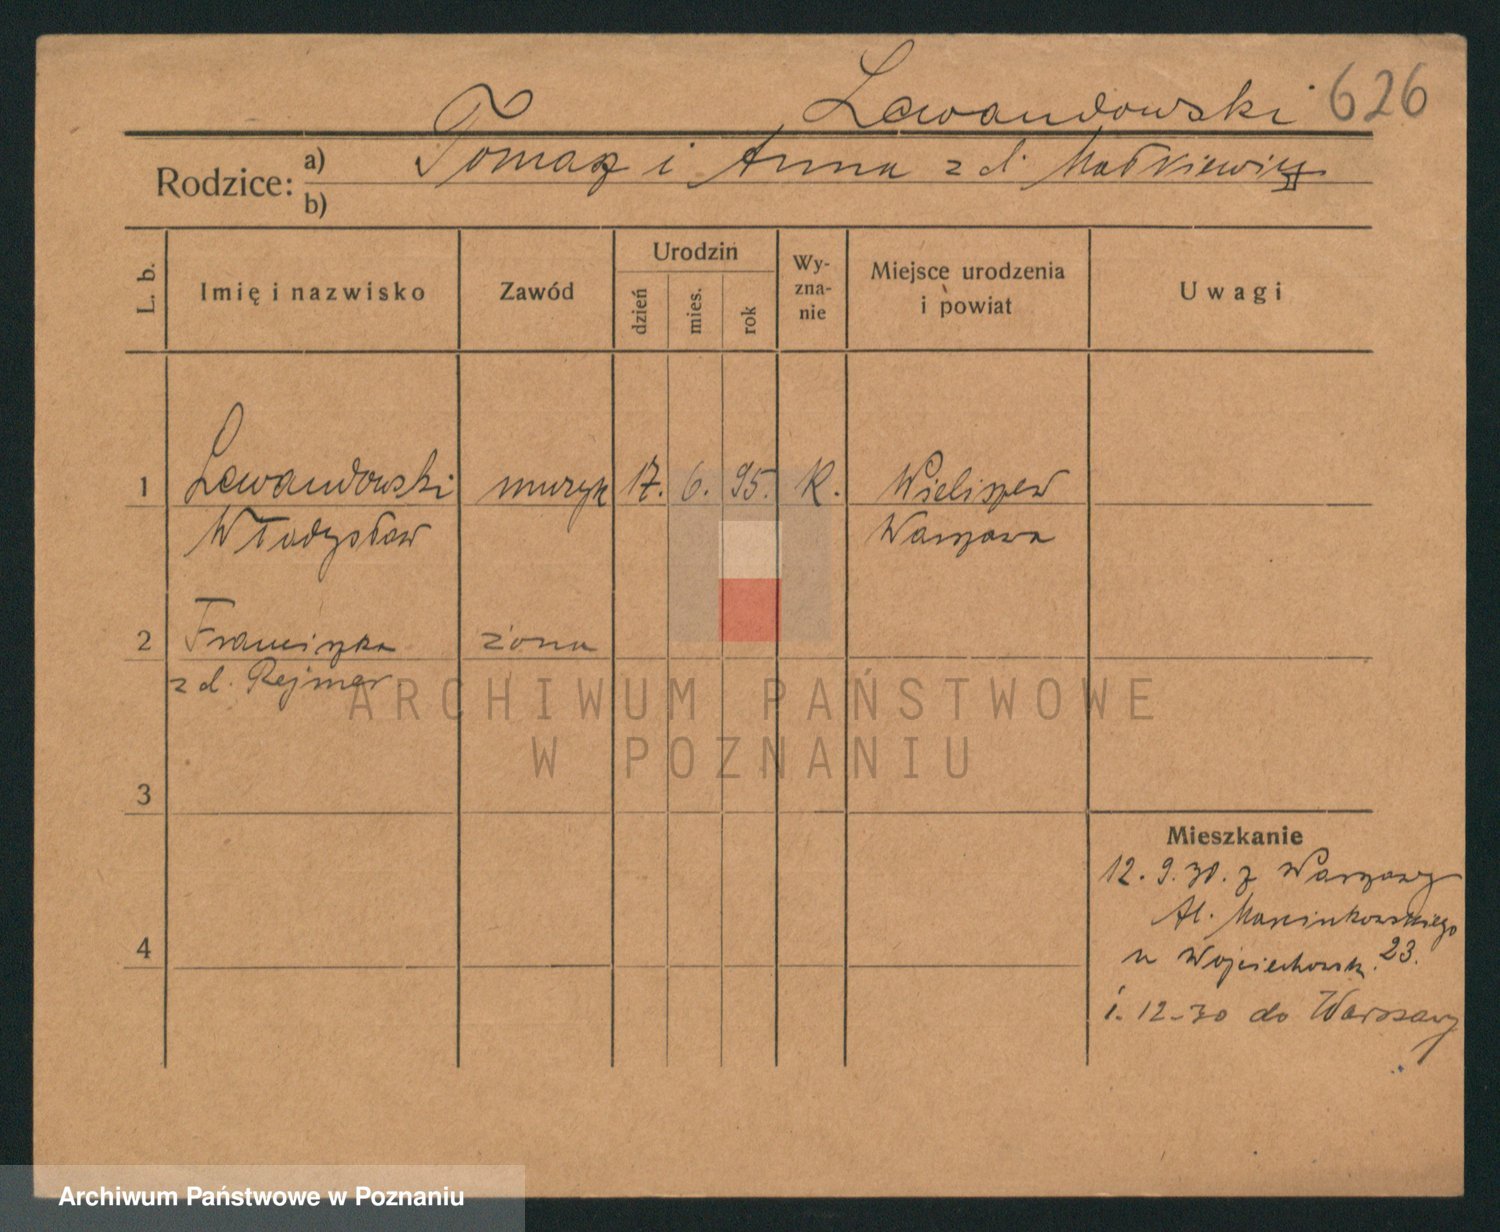 Lewandowski 626
Rodzice: a) Tomasz i Anna z d. Małkiewicz
b)
L. b. Imię i nazwisko Zawód Urodzin dzień mies. rok Wy-zna-nie Miejsce urodzenia i powiat Uwagi
1 Lewandowski muzyk 17. 6. 95. K. Wieliszew
Władysław Warszawa
2 Franciszka żona
z d. Rejmer
ARCHIWUM PAŃSTWOWE
W POZNANIU
3
Mieszkanie
12. 9. 30. z Warszawy
Al. Marcinkowskiego
4
u Wojciechowsk. 23.
1. 12-30 do Warszawy
Archiwum Państwowe w Poznaniu